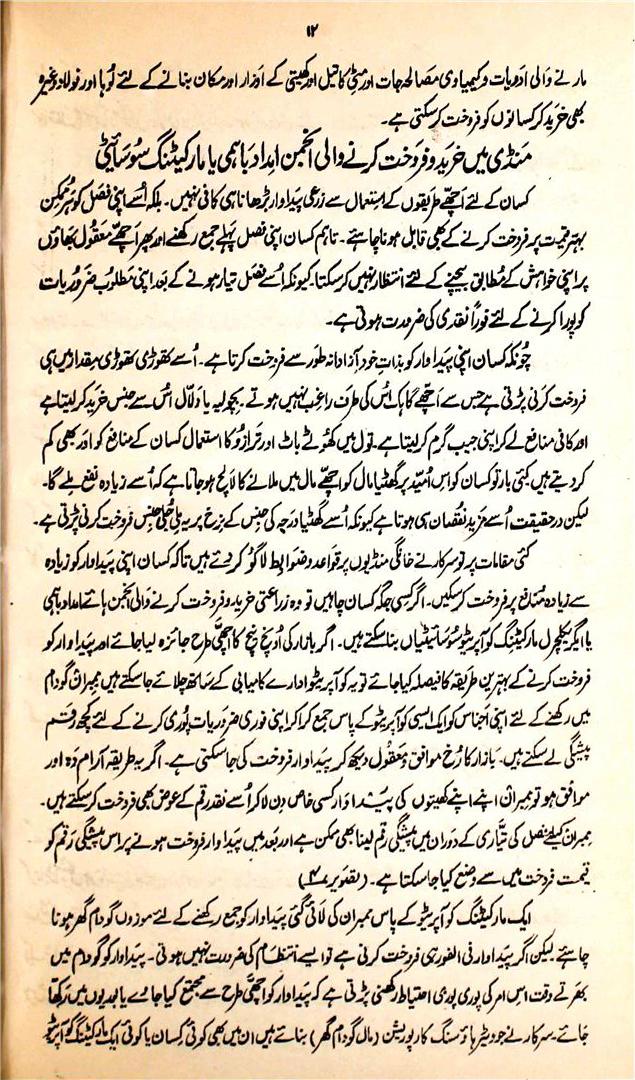 ۱۲
مارنے والی ادویات و کیمیاوی مصالحہ جات اور مٹی کا تیل اور کھیتی کے اوزار اور مکان بنانے کے لئے لوہا اور فولاد وغیرہ
بھی خرید کر کسانوں کو فروخت کر سکتی ہے۔
منڈی میں خرید و فروخت کرنے والی انجمن امداد باہمی یا مارکیٹنگ سوسائیٹی
کسان کے لئے اچھے طریقوں کے استعمال سے زرعی پیداوار بڑھانا ہی کافی نہیں۔ بلکہ اُسے اپنی فصل کو ہر ممکن
بہتر قیمت پر فروخت کرنے کے بھی قابل ہونا چاہئے۔ تاہم کسان اپنی فصل پہلے جمع رکھنے اور پھر اچھے معقول بھاؤں
پر اپنی خواہش کے مطابق بیچنے کے لئے انتظار نہیں کر سکتا۔ کیونکہ اُسے فصل تیار ہونے کے بعد اپنی مطلوب ضروریات
کو پورا کرنے کے لئے فوراً نقدی کی ضرورت ہوتی ہے۔
چونکہ کسان اپنی پیداوار کو بذاتِ خود آزادانہ طور سے فروخت کرتا ہے۔ اُسے تھوڑی تھوڑی مقدار میں ہی
فروخت کرنی پڑتی ہے جس سے اچھے گاہک اُس کی طرف راغب نہیں ہوتے۔ بچولیہ یا دلال اُس سے جنس خرید کر لیتا ہے
اور کافی منافع لے کر اپنی جیب گرم کر لیتا ہے۔ تول میں کھوٹے باٹ اور ترازو کا استعمال کسان کے منافع کو اور بھی کم
کر دیتے ہیں۔ کئی بار تو کسان کو اس اُمید پر گھٹیا مال کو اچھے مال میں ملانے کا لالچ ہو جاتا ہے کہ اُسے زیادہ نفع ملے گا۔
لیکن درحقیقت اُسے مزید نقصان ہی ہوتا ہے کیونکہ اُسے گھٹیا درجہ کی جنس کے نرخ پر یہ ملی جلی جنس فروخت کرنی پڑتی ہے۔
کئی مقامات پر تو سرکار نے خانگی منڈیوں پر قواعد و ضوابط لاگو کر دئے ہیں تاکہ کسان اپنی پیداوار کو زیادہ
سے زیادہ منافع پر فروخت کر سکیں۔ اگر کسی جگہ کسان چاہیں تو وہ زراعتی خرید و فروخت کرنے والی انجمن ہائے امداد باہمی
یا ایگریکلچرل مارکیٹنگ کوآپریٹو سوسائیٹیاں بنا سکتے ہیں۔ اگر بازار کی اُونچ نیچ کا اچھی طرح جائزہ لیا جائے اور پیداوار کو
فروخت کرنے کے بہترین طریقہ کا فیصلہ کیا جائے تو یہ کوآپریٹو ادارے کامیابی کے ساتھ چلائے جا سکتے ہیں ممبران گودام
میں رکھنے کے لئے اپنی اجناس کو ایک ایسی کوآپریٹو کے پاس جمع کرا کر اپنی فوری ضروریات پوری کرنے کے لئے کچھ رقم
پیشگی لے سکتے ہیں۔ بازار کا رُخ موافق و معقول دیکھ کر پیداوار فروخت کی جا سکتی ہے۔ اگر یہ طریقہ آرام دہ اور
موافق ہو تو ممبران اپنے اپنے کھیتوں کی پیداوار کسی خاص دن لا کر اُسے نقد رقم کے عوض بھی فروخت کر سکتے ہیں۔
ممبران کیلئے فصل کی تیاری کے دوران میں پیشگی رقم لینا بھی ممکن ہے اور بعد میں پیداوار فروخت ہونے پر اس پیشگی رقم کو
قیمت فروخت میں سے وضع کیا جا سکتا ہے۔ (تصویر ۴)
ایک مارکیٹنگ کوآپریٹو کے پاس ممبران کی لائی گئی پیداوار کو جمع رکھنے کے لئے موزوں گودام گھر ہونا
چاہئے لیکن اگر پیداوار فی الفور ہی فروخت کرنی ہے تو ایسے انتظام کی ضرورت نہیں ہوتی۔ پیداوار کو گودام میں
بھرتے وقت اس امر کی پوری پوری احتیاط رکھنی پڑتی ہے کہ پیداوار کو اچھی طرح سے مجتمع کیا جائے یا بوریوں میں رکھا
جائے۔ سرکار نے جو ویئر ہاؤسنگ کارپوریشن (مال گودام گھر) بنائے ہیں ان میں بھی کوئی کسان یا کوئی ایک مارکیٹنگ کوآپریٹو